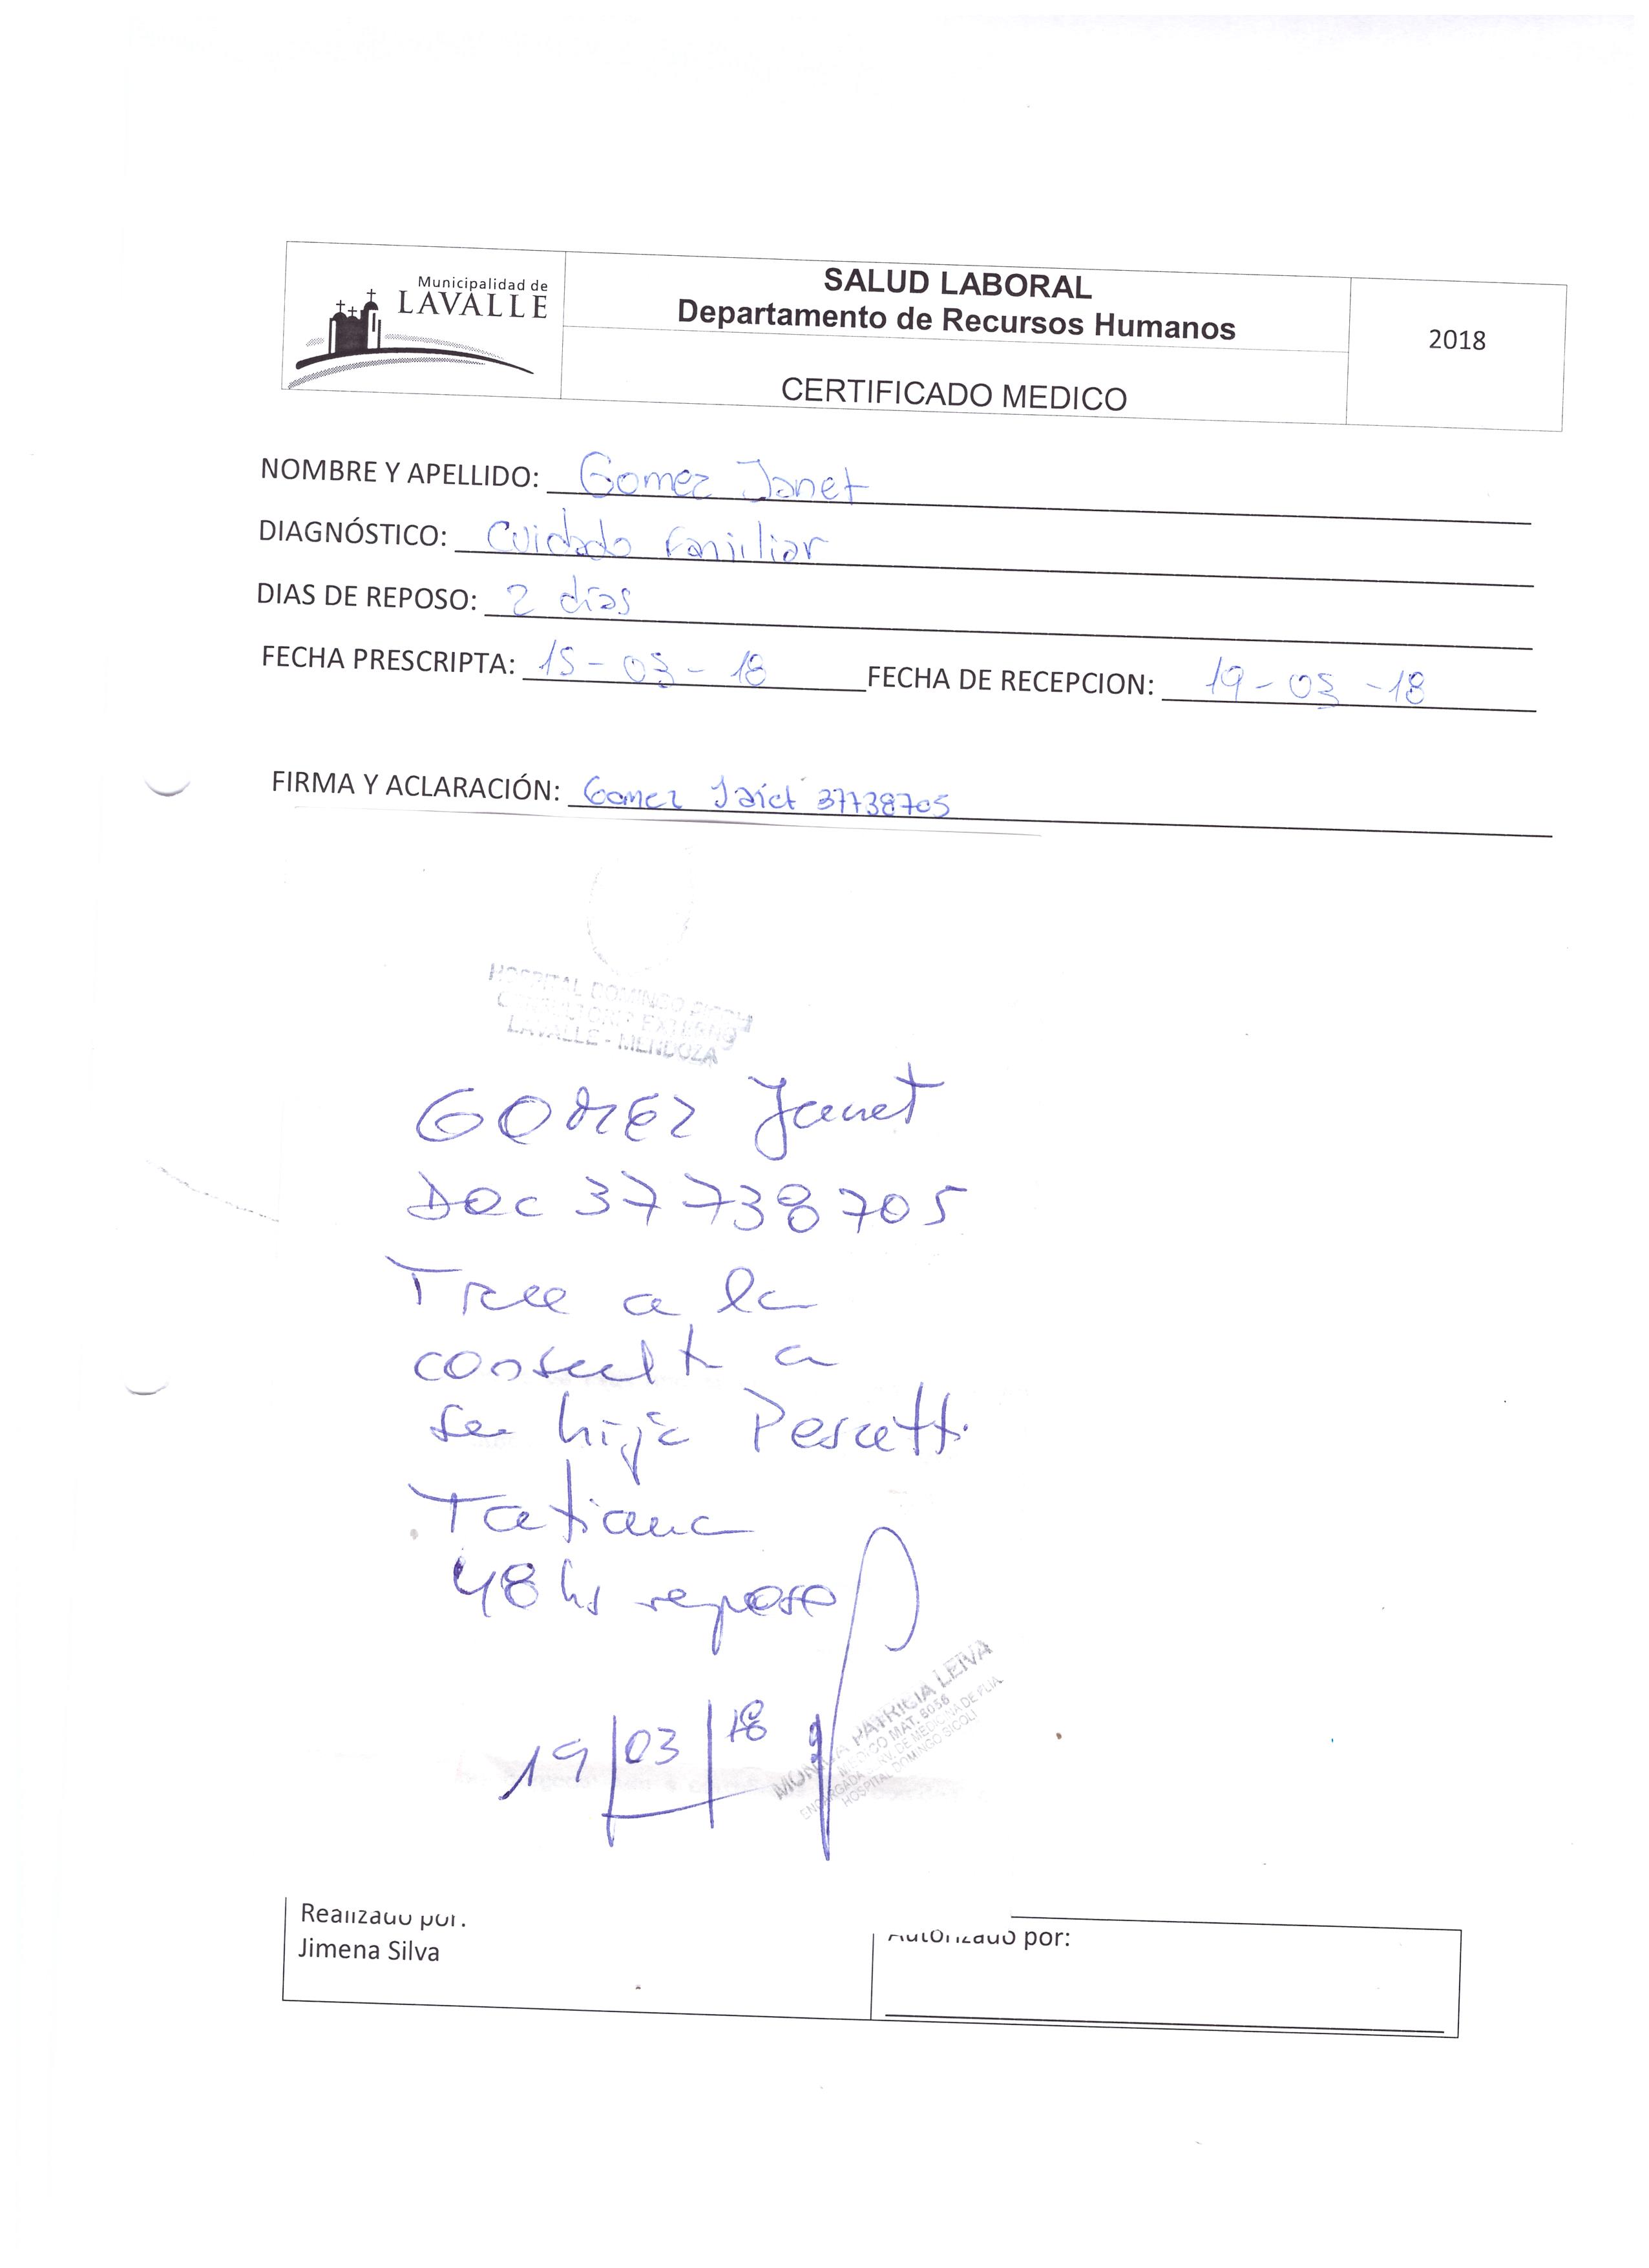 Municipalidad de
LAVALLE
SALUD LABORAL
Departamento de Recursos Humanos
CERTIFICADO MEDICO
2018
NOMBRE Y APELLIDO: Gomez Janet
DIAGNÓSTICO: Cuidado Familiar
DIAS DE REPOSO: 2 días
FECHA PRESCRIPTA: 15-03-18 FECHA DE RECEPCION: 19-03-18
FIRMA Y ACLARACIÓN: Gomez 37738705
HOSPITAL DOMINGO SICOLI
CONSULTORIO EXTERNO
LAVALLE - MENDOZA
GOMEZ Janet
Doc 37738705
Trae a la
consulta a
su hija Pescetti
Tatiana
48 hs reposo
19/03/18
PATRICIA LEIVA
MEDICO MAT. 8056
ENCARGADA SERV. DE MEDICINA DE FLIA.
HOSPITAL DOMINGO SICOLI
Realizado por:
Jimena Silva
Autorizado por: